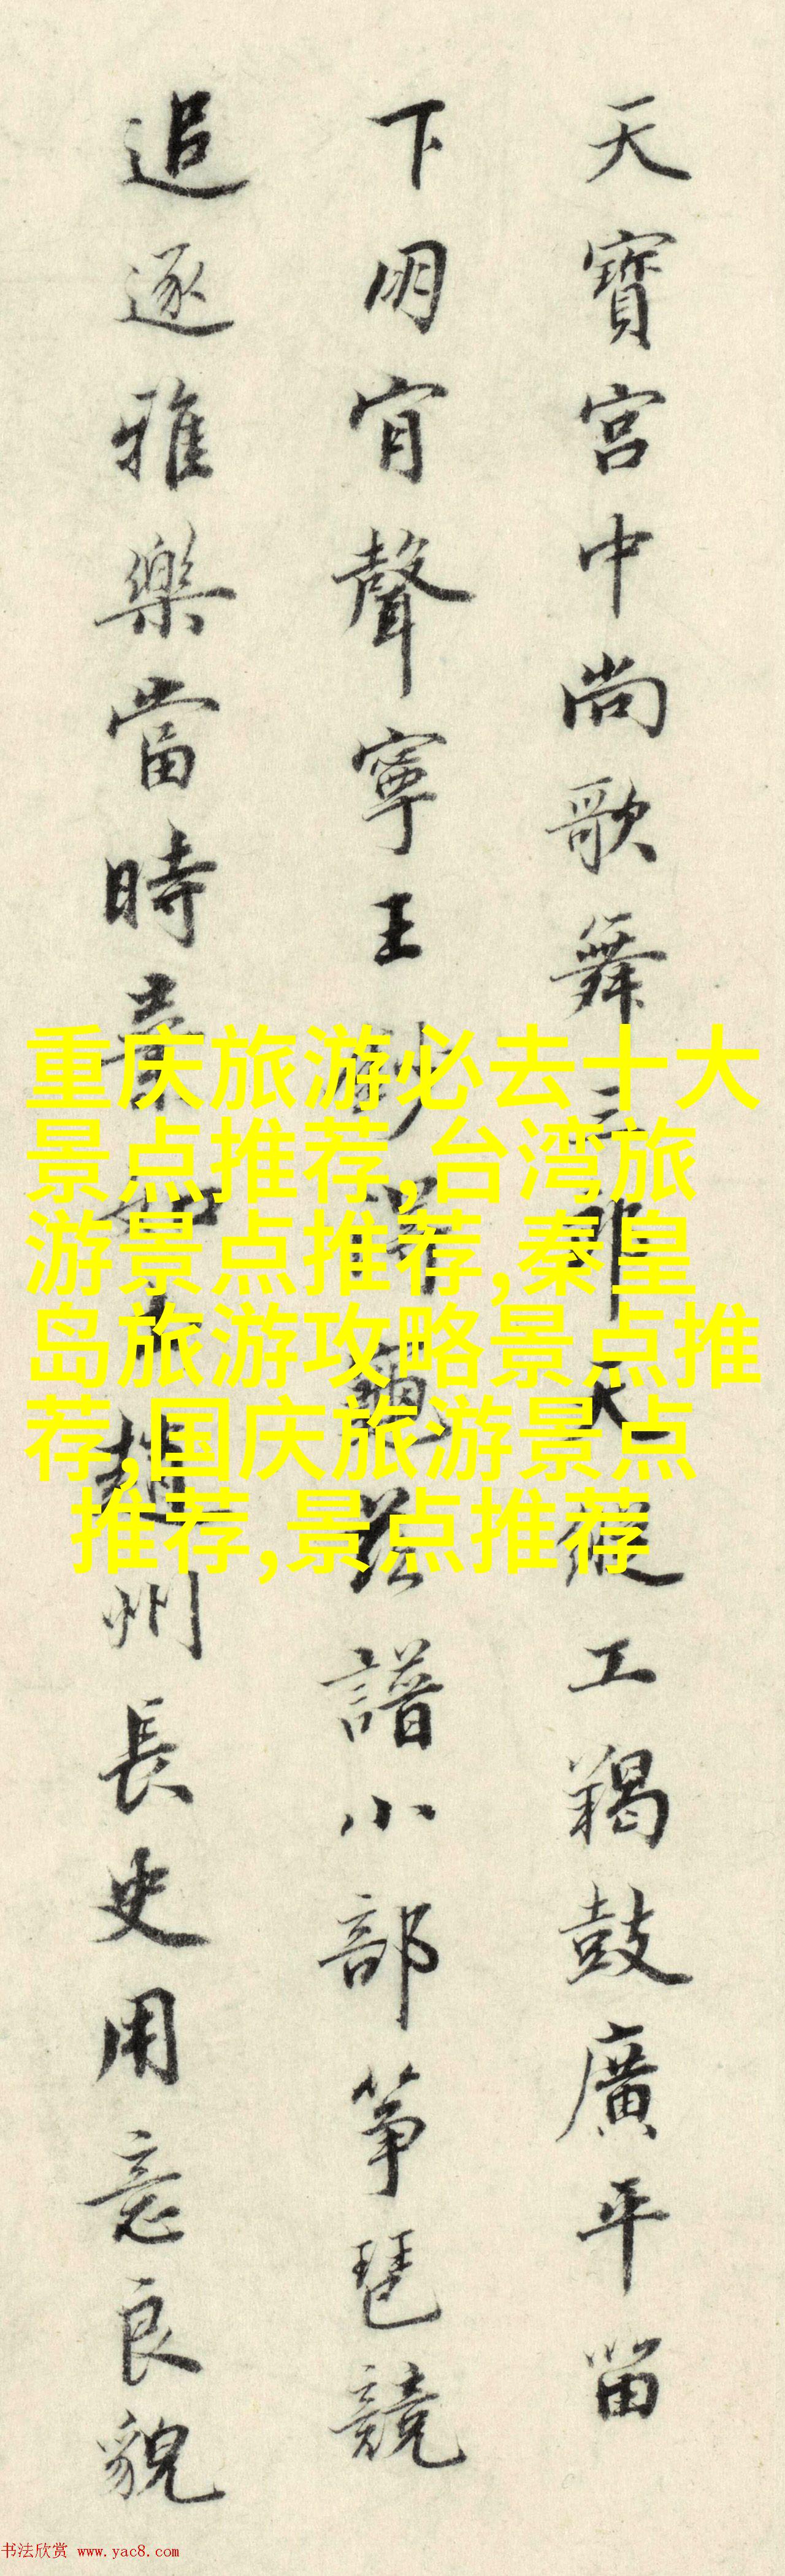 天寶宮中尚歌舞三郎天縱工羯鼓廣平留
下朋肎聲寧王妙龜茲譜小部筝琶競
追逐雅樂當時趙州長史用意良貌
重庆旅游必去十大
景点推荐,台湾旅
游景点推荐,秦皇
岛旅游攻略景点推
荐,国庆旅游景点
推荐,景点推荐
书法欣赏 www.yac8.com